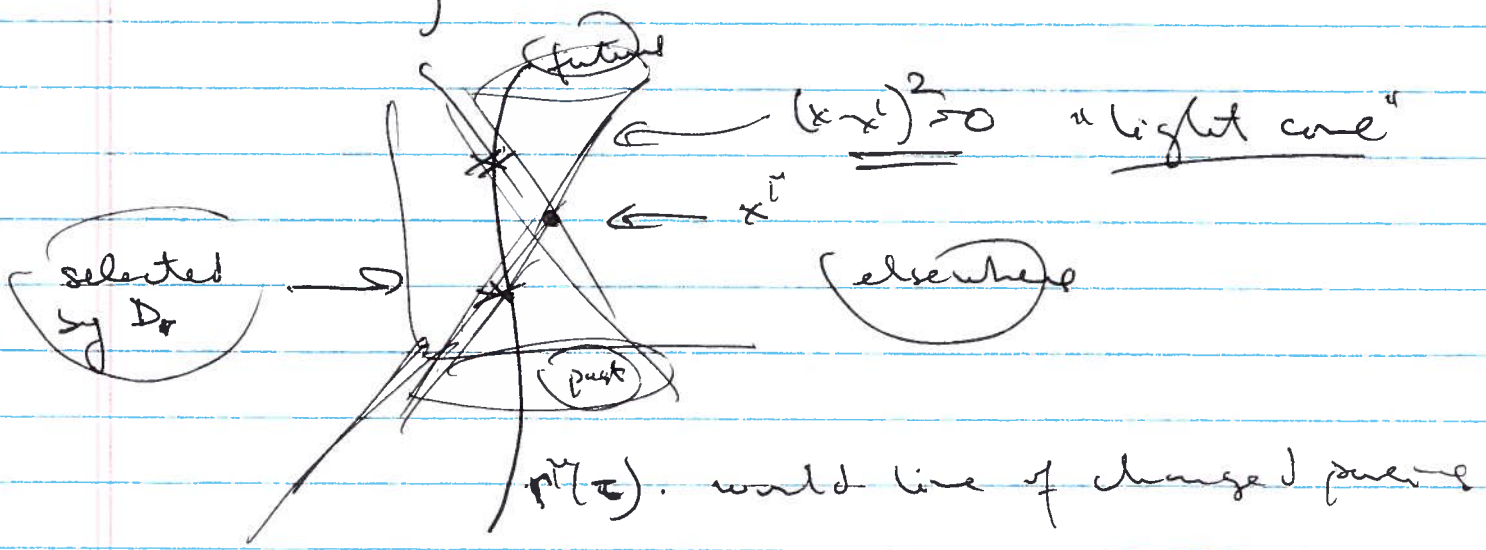 future
(x-x')² = 0 "light cone"
x^μ
selected
by D_r
elsewhere
past
r^μ(τ). world line of charged